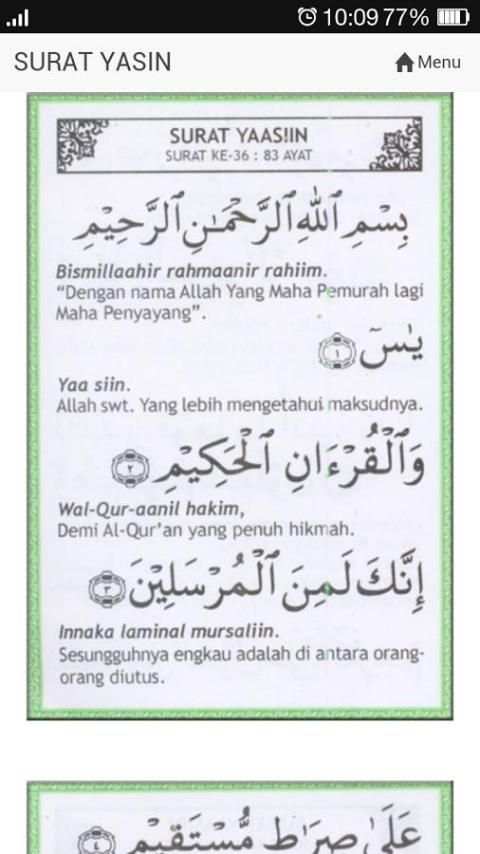 10:09 77%
SURAT YASIN
Menu
SURAT YAASIIN
SURAT KE-36 : 83 AYAT
بِسْمِ ٱللَّهِ ٱلرَّحْمَٰنِ ٱلرَّحِيْمِ
Bismillaahir rahmaanir rahiim.
“Dengan nama Allah Yang Maha Pemurah lagi
Maha Penyayang”.
يٰسۤ ﴿١﴾
Yaa siin.
Allah swt. Yang lebih mengetahui maksudnya.
وَٱلْقُرْءَانِ ٱلْحَكِيْمِ ﴿٢﴾
Wal-Qur-aanil hakim,
Demi Al-Qur’an yang penuh hikmah.
إِنَّكَ لَمِنَ ٱلْمُرْسَلِيْنَ ﴿٣﴾
Innaka laminal mursaliin.
Sesungguhnya engkau adalah di antara orang-
orang diutus.
عَلَىٰ صِرَاطٍ مُّسْتَقِيْمٍ ﴿٤﴾